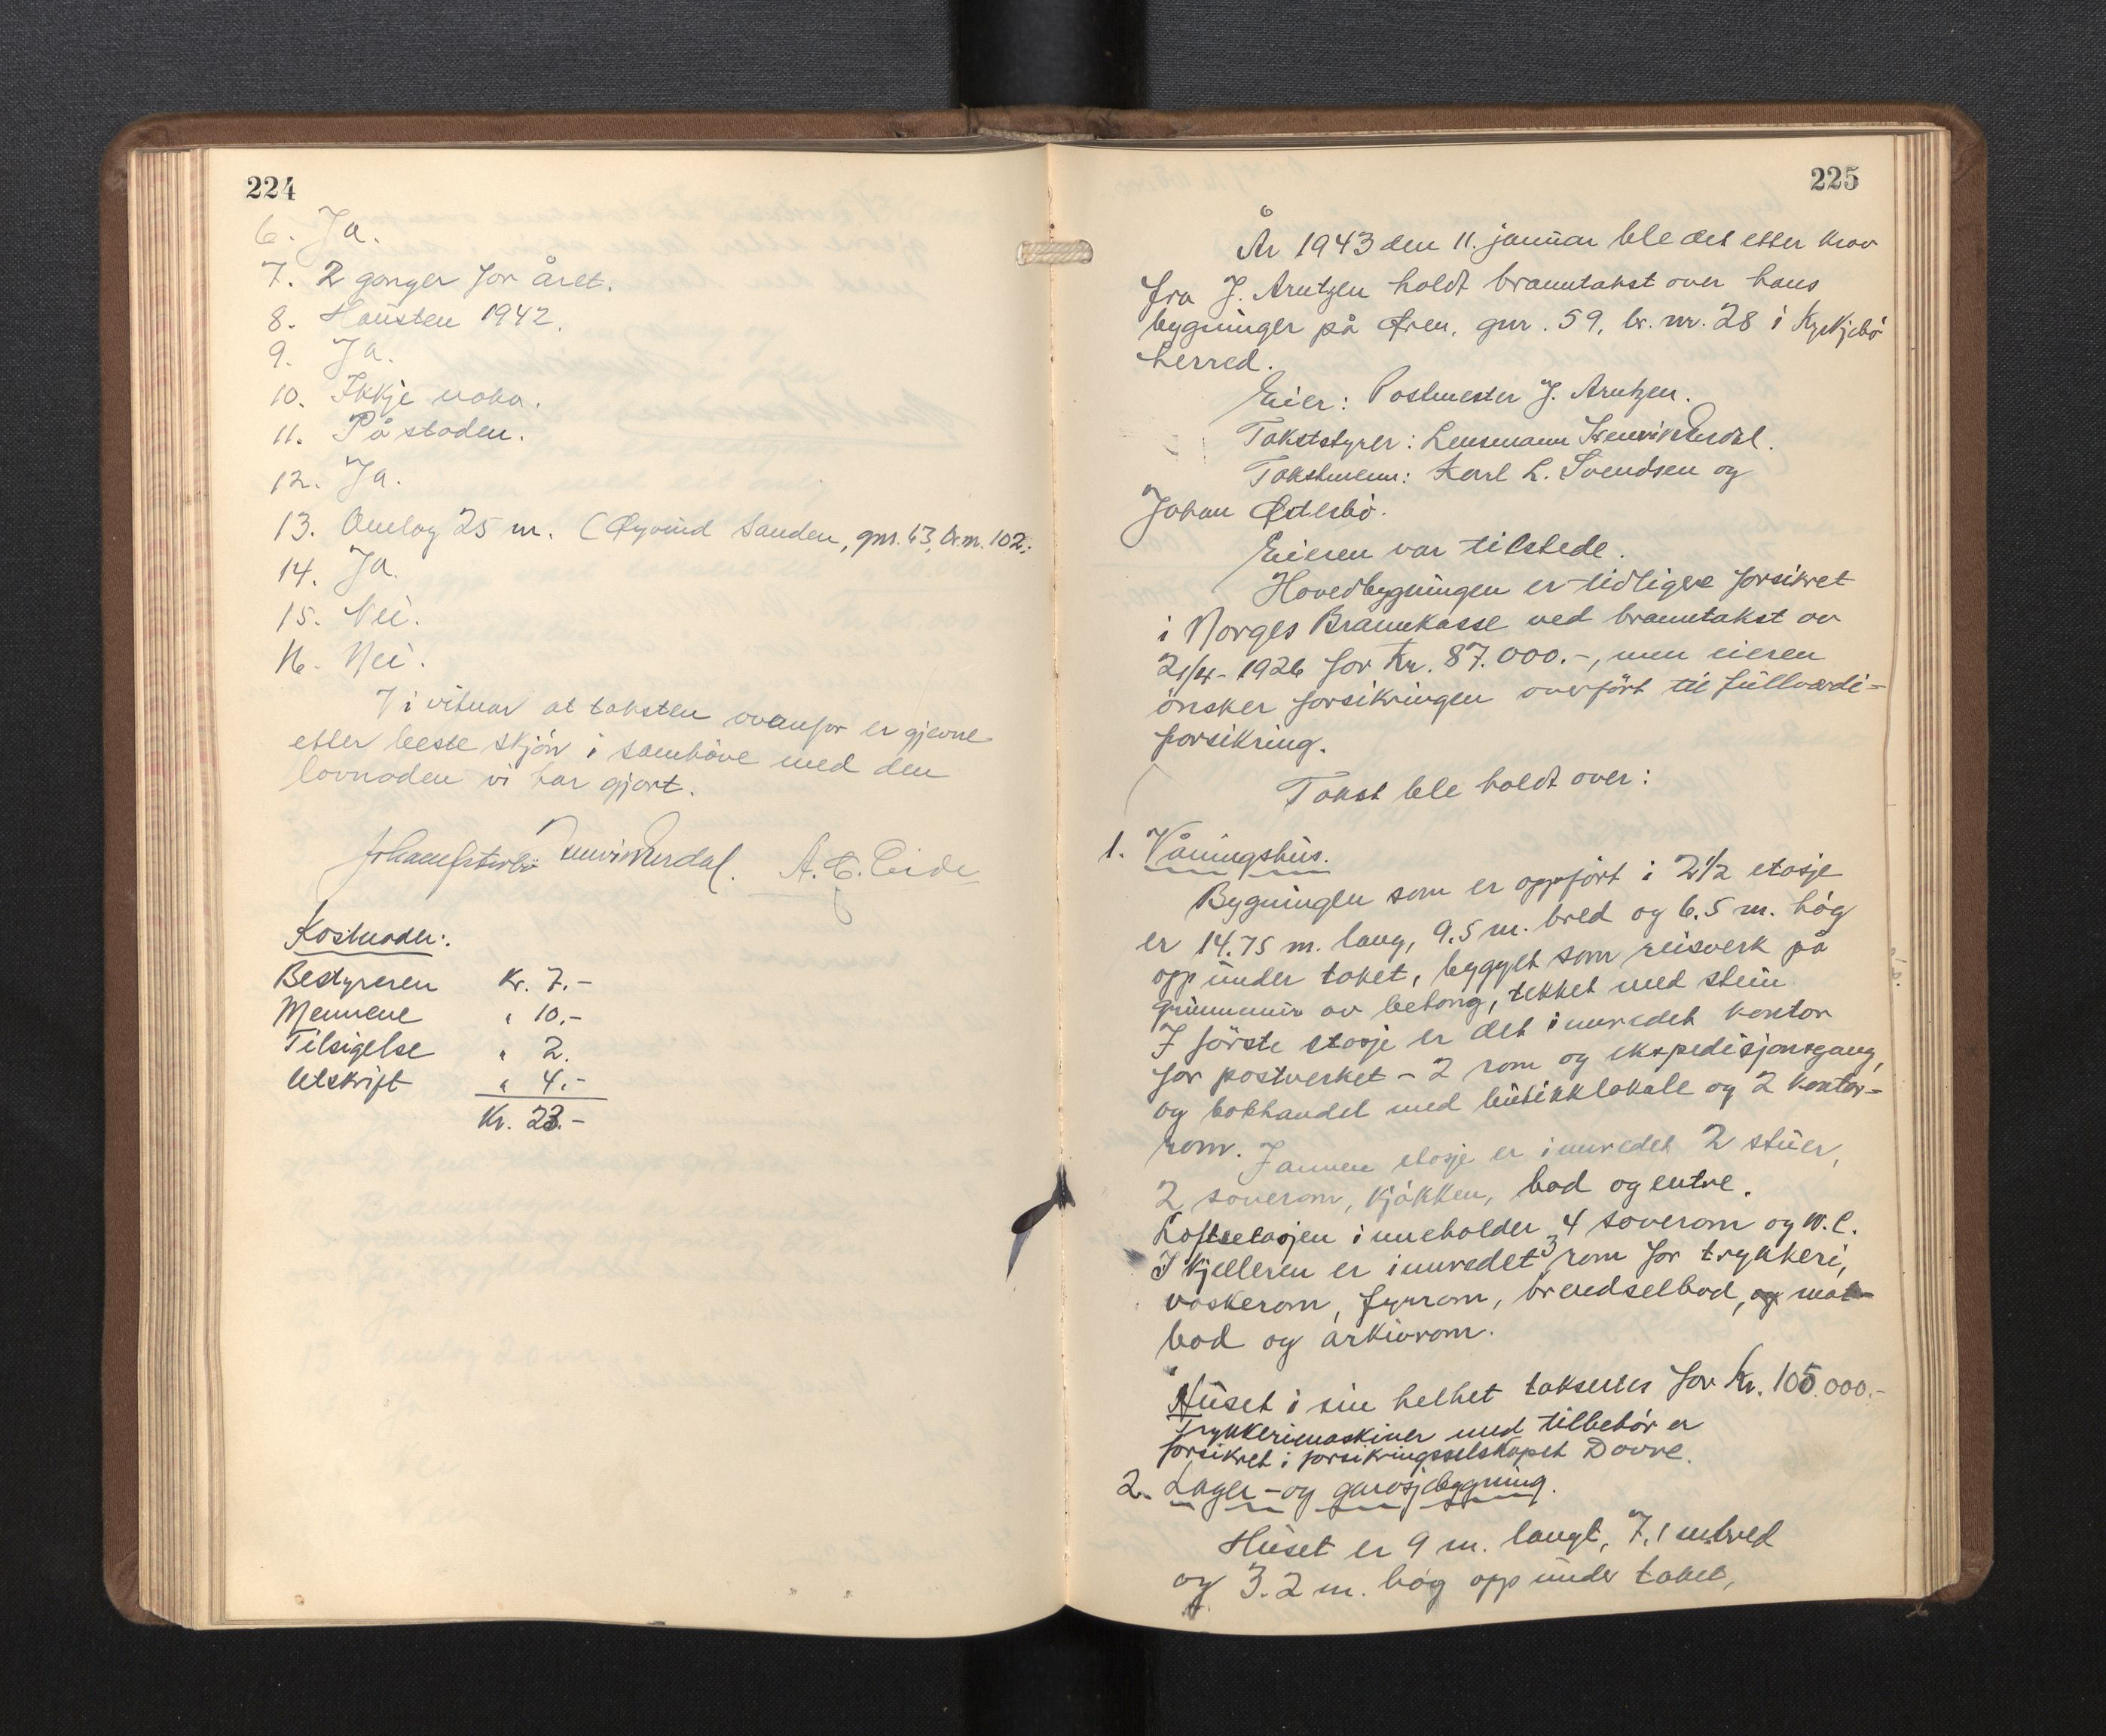 224
6. Ja.
7. 2 ganger for året.
8. Hausten 1942.
9. Ja.
10. Ikkje noko.
11. På staden.
12. Ja.
13. Omlag 25 m. (Øyvind Sanden, gnr. 63, br.nr. 102.
14. Ja.
15. Nei.
16. Nei.
Vi vitnar at taksten ovanfor er gjevne
etter beste skjön i samhöve med den
lovnaden vi har gjort.
Johan Østerbö A. E. Eide
Kostnader:
Bestyreren Kr. 7.-
Mennene " 10,-
Tilsigelse " 2.
Utskrift " 4.-
Kr. 23.-
225
År 1943 den 11. januar ble det etter krav
fra J. Arntzen holdt branntakst over hans
bygninger på Øren, gnr. 59, br. nr. 28 i Kyrkjebö
herred.
Eier: Postmester J. Arntzen.
Takststyrer: Lensmann
Takstmenn: Karl L. Svendsen og
Johan Østerbö.
Eieren var tilstede.
Hovedbygningen er tidligere forsikret
i Norges Brannkasse ved branntakst av
21/4-1926 for Kr. 87.000.-, men eieren
önsker forsikringen overfört til fullverdi-
forsikring.
Takst ble holdt over:
1. Våningshus.
Bygningen som er oppfört i 2 1/2 etasje
er 14.75 m. lang, 9.5 m. bred og 6.5 m. høg
opp under taket, bygget som reisverk på
grunnmur av betong, tekket med stein.
I förste etasje er det innredet kontor
for postverket - 2 rom og ekspedisjonsgang,
og bokhandel med butikklokale og 2 kontor-
rom. I annen etasje er innredet 2 stuer,
2 soverom, kjökken, bad og entre.
Loftsetasjen inneholder 4 soverom og W.C.
I kjelleren er innredet 3 rom for trykkeri,
vaskerom, fyrrom, brendselbod, og mat-
bod og arkivrom.
Huset i sin helhet takseres for Kr. 105.000.-
Trykkerimaskiner med tilbehör er
forsikret i forsikringsselskapet Dovre.
2. Lager- og garasjebygning.
Huset er 9 m. langt, 7,1 m. bred
og 3.2 m. høg opp under taket,